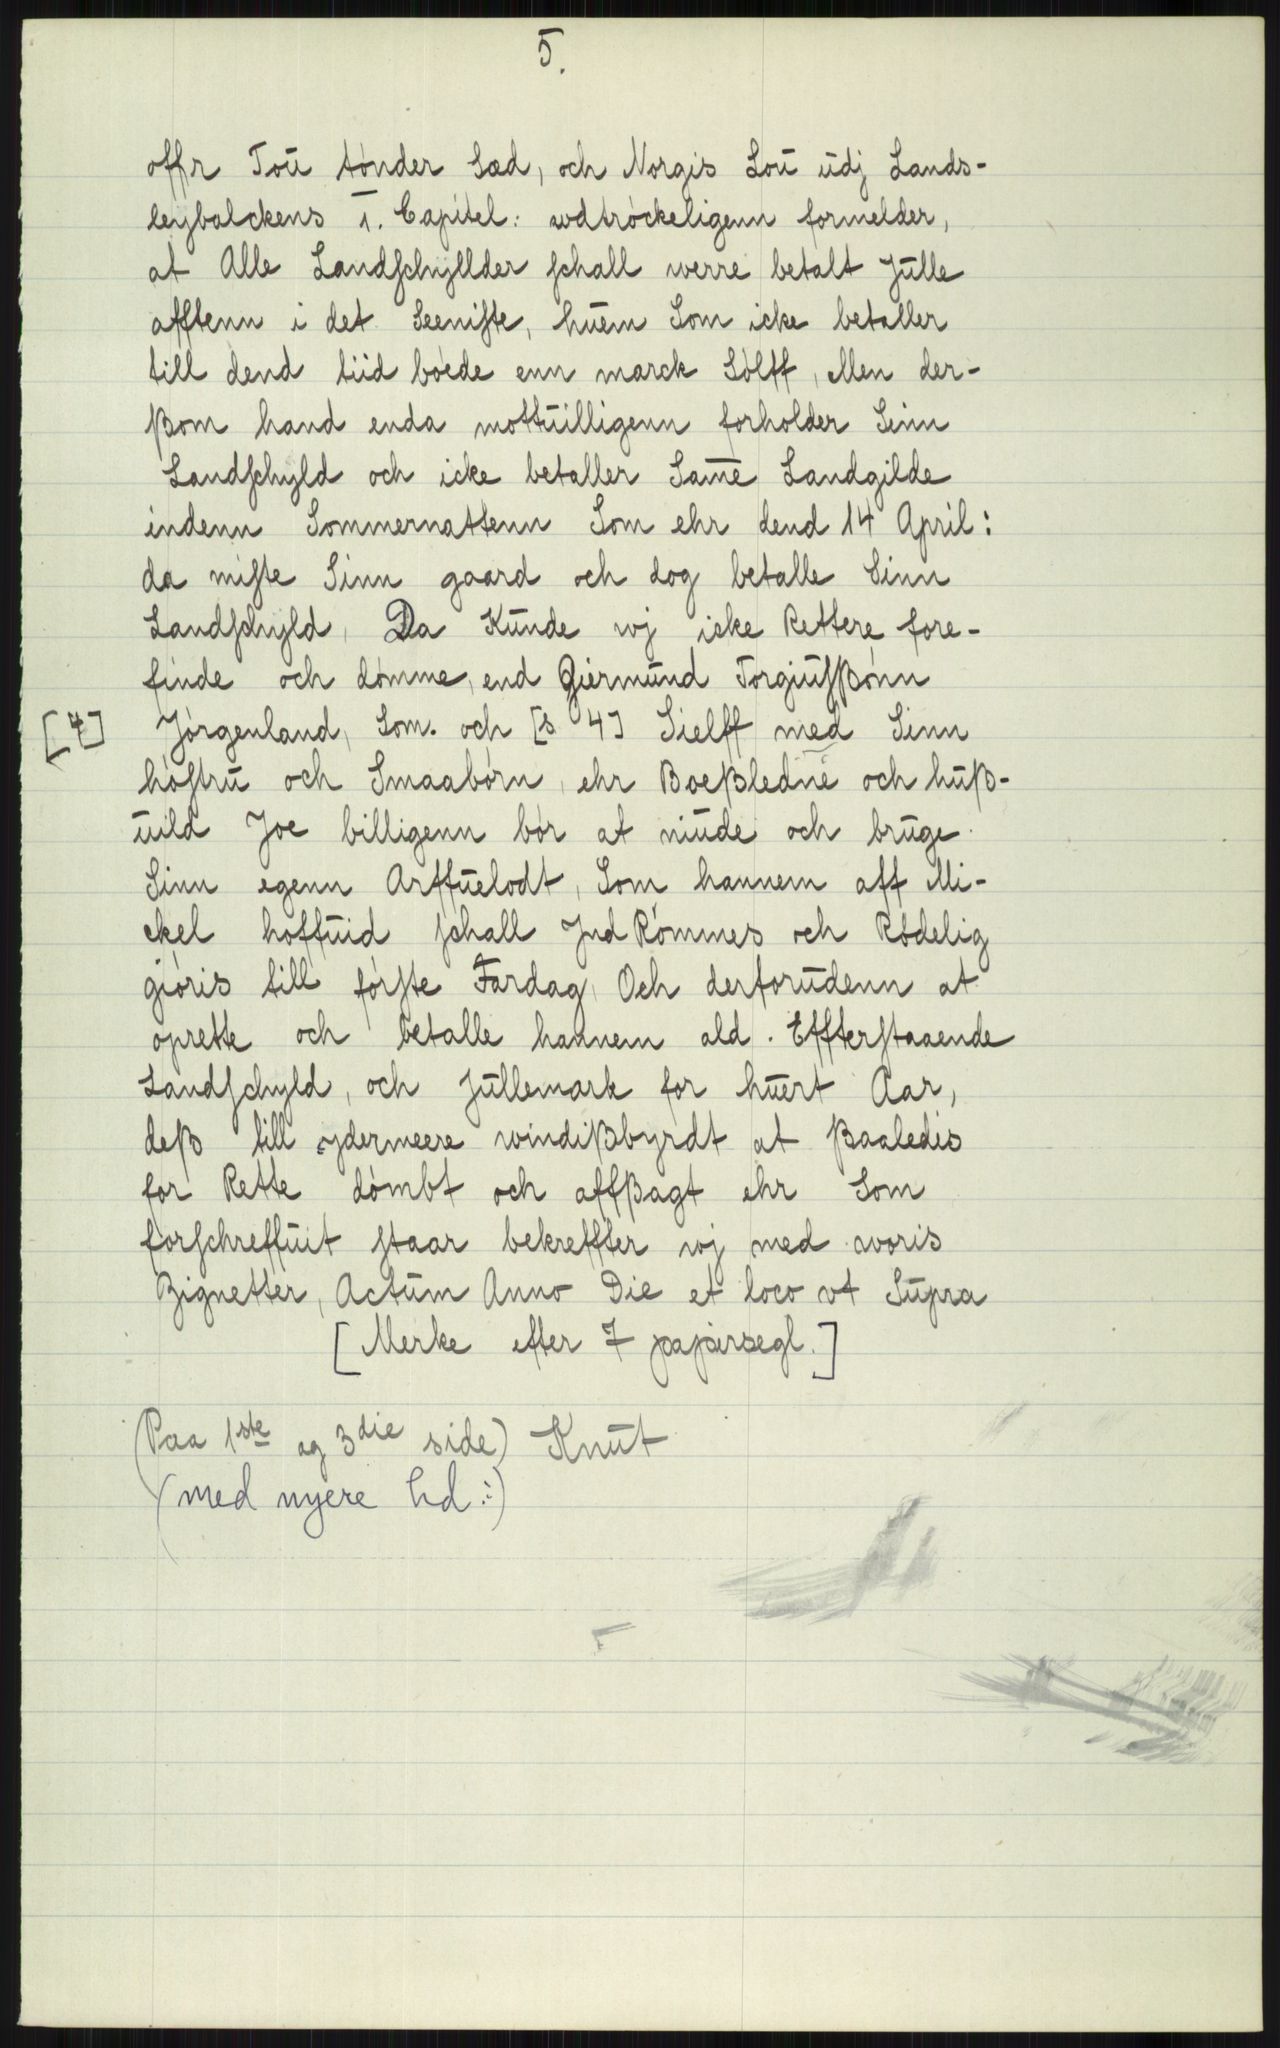 5.
offr Toū tónder Sæd, och Norgis Loū ūdj Lands-
leybalckens 1. Capitel: wdtróckeligenn formelder,
at Alle Landſchyllder ſchall werre betalt Jūlle
afftenn i det Seeniſte, hūem Som icke betaller
till dend tiid bóede enn marck Sólff, Men der-
ßom hand enda mottūilligenn forholder Sinn
Landſchyld och icke betaller Sam̄e Landgilde
indenn Sommernattenn Som ehr dend 14 April:
da miſte Sinn gaard och dog betalle Sinn
Landſchyld, Da Kūnde wj icke Rettere fore-
finde och dómme, end Giermūnd Torgiūſßónn
[4] Jórgenland, Som. och [s 4] Sielff med Sinn
hóſtrū och Smaabórn, ehr Boeßledne och hūß-
ūild Joe billigenn bór at niūde och brūge
Sinn egenn Arffūelodt, Som hannem aff Mi-
ckel hoffūid ſchall Jnd Rómmes och Rődelig
gióris till fórſte Fardag, Och derforūdenn at
oprette och betalle hannem ald. Effterſtaaende
Landſchyld, och Jūllemark for hūert Aar,
deß till ydermeere windißbyrdt at ßaaledis
for Rette dómbt och affßagt ehr Som
forſchreffūit ſtaar bekreffter wj med woris
Zignetter, Actūm Anno Die et loco vt Sūpra
[Merke efter 7 papirsegl.]
(Paa 1ste og 3die side) Knūt
(med nyere hd:)